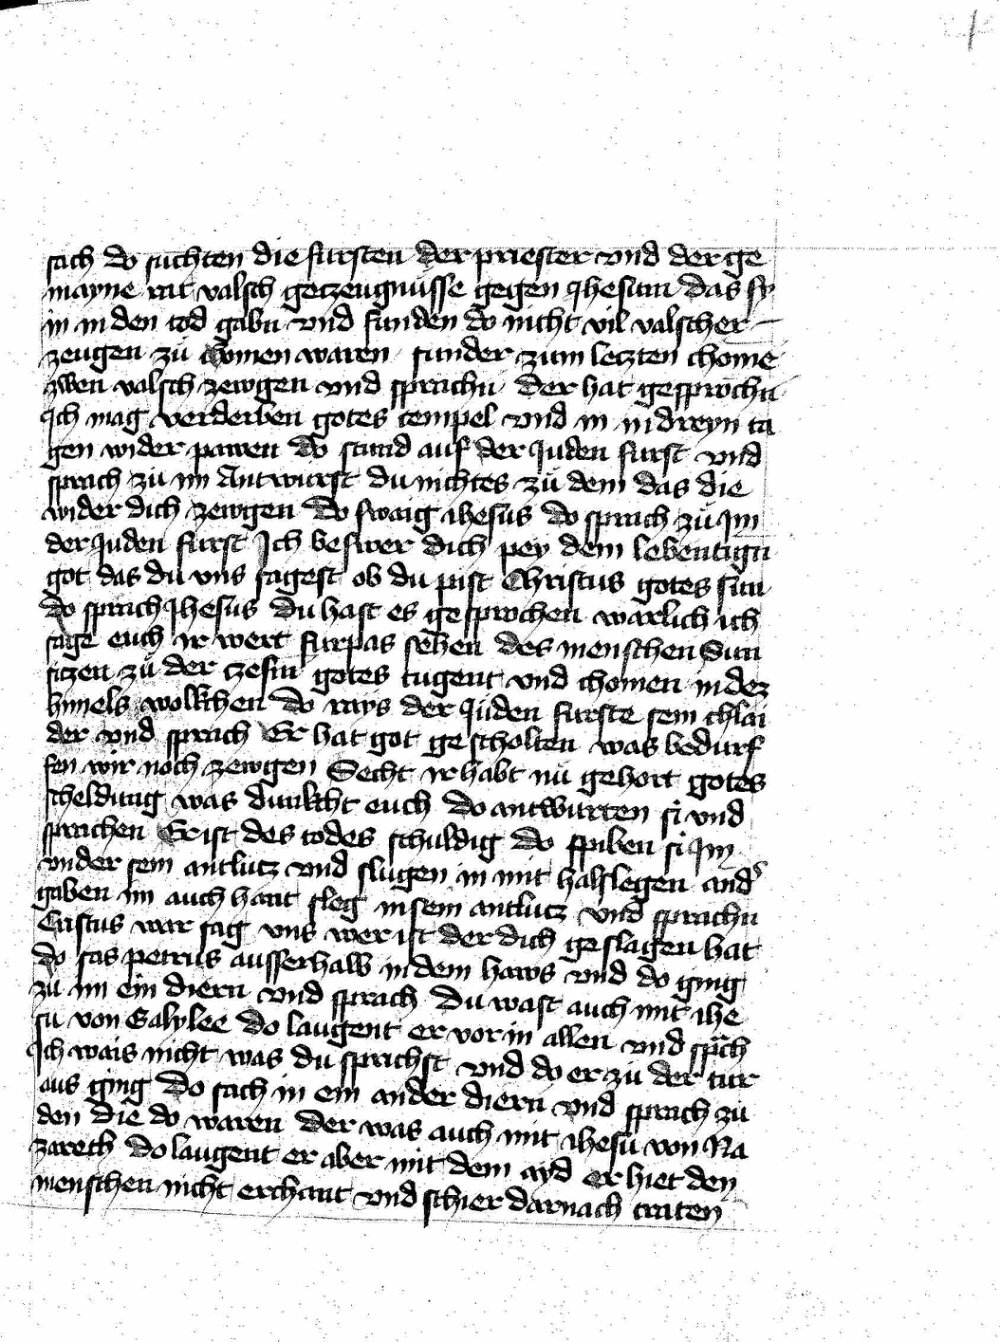 sach do suchten die fursten der priester vnd der ge
mayne rat valsch getzeugnüsse gegen Jhesum das sy
in in den tod gabn vnd funden do nicht vil valscher
zeugen zů chomen waren sunder zum letzten chome
zwen valsch zewgen vnd sprachn der hat gesprochn
Ich mag verderben gotes tempel vnd in in dreyn ta
gen wider pawen Do stund auf der Juden furst vnd
sprach zů im Antwurst du nichtes zů dem das die
wider dich zewgen Do swaig ihesus do sprach zů Im
der Juden furst Ich beswer dich pey dem lebentign
got das du vns sagest ob du pist Christus gotes sun
do sprach Jhesus Du hast es gesprochen warlich ich
sage euch ir wert furpas sehen des menschen Sun
sitzen zů der czesm gotes tugent vnd chomen in dez
himels wolkchen Do rays der Juden furste sein chlai
der vnd sprach Er hat got gescholten was bedurf
fen wir noch zewgen Secht ir habt nů gehort gotes
scheldung was dunkcht euch Do antwurten si vnd
sprachen Er ist des todes schuldig Do spiben si Im
vnder sein antlutz vnd slugen in mit halslegen and's
gaben im auch hant sleg in sein antlutz vnd sprachn
Cristus war sag vns wer ist der dich geslagen hat
do sas petrus ausserhalb in dem haws vnd do ging
zů im ein diern vnd sprach Du wast auch mit ihe
su von Galylee Do laugent er vor in allen vnd sp̄ch
Ich wais nicht was du sprichst vnd do er zu der tur
aus ging Do sach in ein ander diern vnd sprach zů
den die do waren der was auch mit ihesu von Na
zareth Do laugent er aber mit dem ayd er hiet den
menschen nicht erchant vnd schier darnach traten